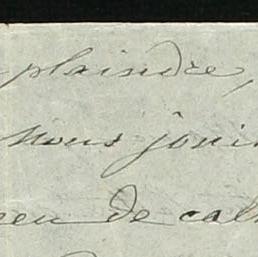 plaindre,
nous joui
peu de cal